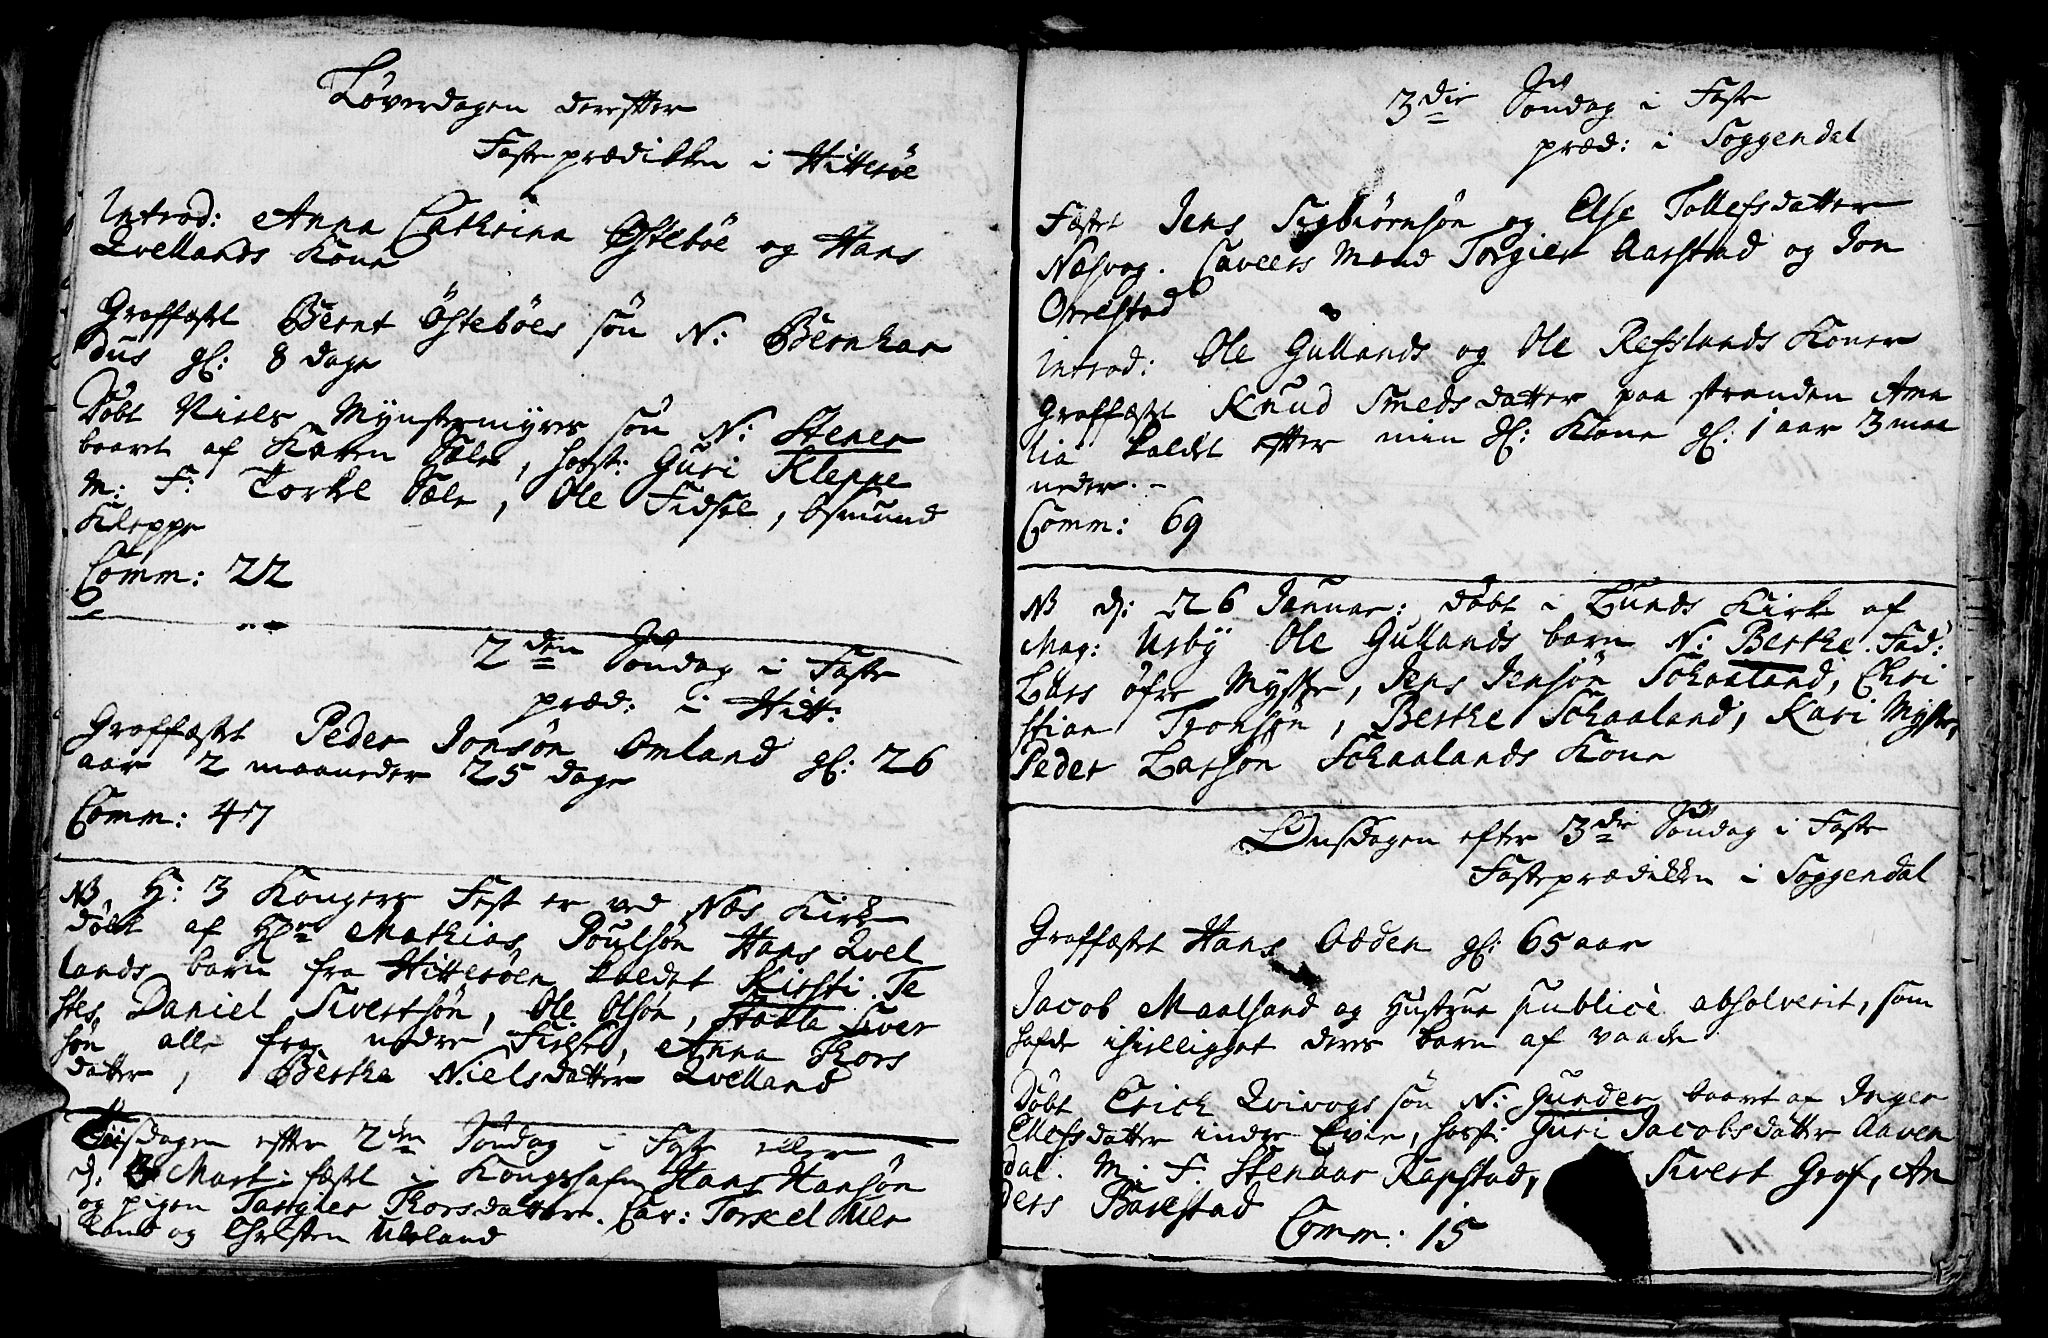 Løverdagen derefter
Fasteprædikken i Hitterøe
Introd: Anna Cathrina Østebøe og Hans
Qvellands Kone
Graffæstet Bernt Östebôes sön N: Bernhar
dus gl: 8 dage
Döbt Niels Mÿnstermÿrs sön N: Stener
baaret af Karen Sæle, hosst: Guri Kleppe
M: F: Torkel Sæle, Ole Fidsel, Osmund
Kleppe
Comm: 22
2den Söndag i Faste
præd: i Hitt:
Graffæstet Peder Jonsön Omland gl: 26
aar 2 maaneder 25 dage
Comm: 47
NB H: 3 Kongers Fest er ved Næs Kirke
döbt af Hr Mathias Poulsön Hans Qvel
lands barn fra Hitterøen kaldet Kirsti. Te
stes Daniel Sivertsön, Ole Olsön, Siver
sön alle fra nedre Fidsel, Anna Thors
datter, Berthe Nielsdatter Qvelland
Tiisdagen efter 2den Söndag i Faste eller
d: Mart: fæstet i Kongshafn Hans Hansön
og pigen Targier Thorsdatter. Cav: Torkel Ule
land og Christen Uleland
3die Söndag i Faste
præd: i Soggendal
Fæstet Jens Sigbiörnsön og Else Tollefsdatter
Næsvog. Caveers Mænd Torgier Aarstad og Jon
Orrestad
Introd: Ole Gullands og Ole Refslands Koner
Graffæstet Knud Smeds datter paa stranden Ama
lia kaldet efter min gl: Kone gl: 1 aar 3 maa
neder. -
Comm: 69
NB d: 26 Januar: döbt i Lunds Kirke af
Mag: Usby Ole Gullands barn N: Berthe. Fad:
Lars öfre Mysse, Jens Jensön Schaaland, Chri
stian Tronsen, Berthe Schaaland, Kari Mysse,
Peder Larsön Schaalands Kone
Onsdagen efter 3die Söndag i Faste
Fasteprædikken i Soggendal
Graffæstet Hans Odden gl: 65 aar
Jacob Maalsand og Hustrue publicè absolverit, som
hafde ihielligget deres barn af vaade
Döbt Erich Qvivogs sön N: Gunder baaret af Inger
Ellefsdatter indre Evie, hosst: Guri Jacobsdatter Aaven
dal. M: F. Stenaar Rapstad, Sivert Graf, An
ders Barstad
Comm: 15